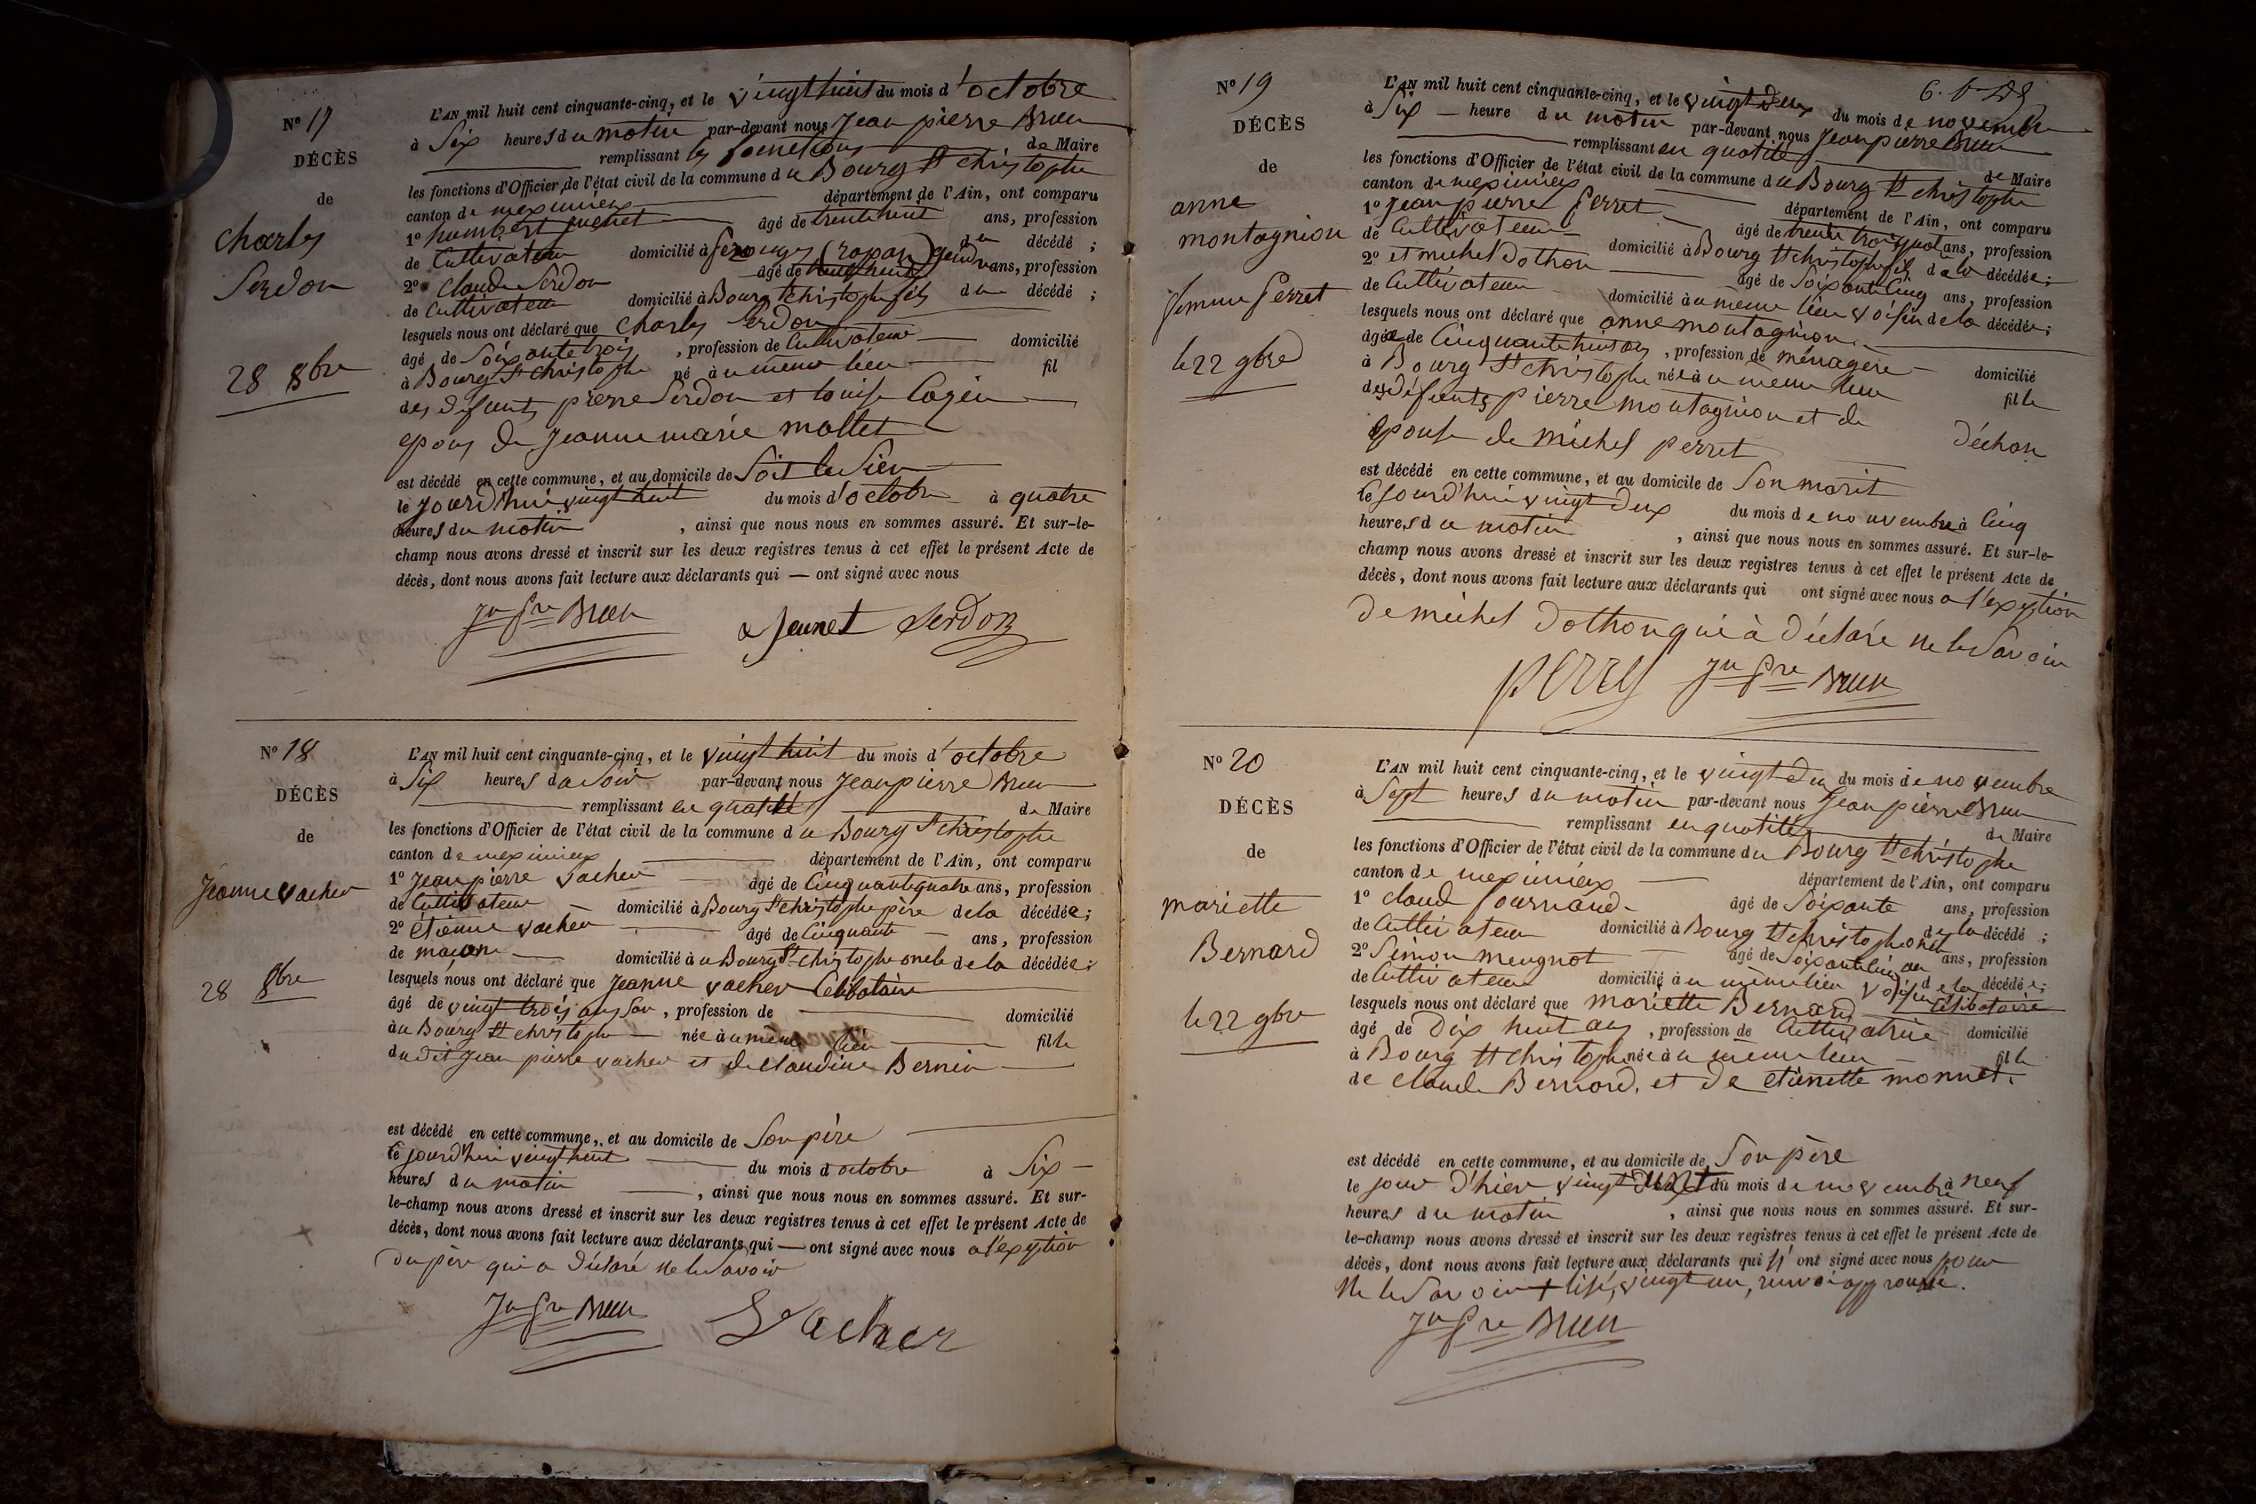 N° 17
DÉCÈS
de
Charles
Serdon
28 8bre
L'AN mil huit cent cinquante-cinq, et le vingt huit du mois d'octobre
à Six heures du matin par-devant nous Jean pierre Brun
remplissant les fonctions de Maire
les fonctions d'Officier de l'état civil de la commune du Bourg St christophe
canton de meximieux département de l'Ain, ont comparu
1° humbert jeunet âgé de trente huit ans, profession
de Cultivateur domicilié à Perouges (rapan) gendre du décédé ;
2° Claude Serdon âgé de ans, profession
de Cultivateur domicilié à Bourg St christophe fils du décédé ;
lesquels nous ont déclaré que Charles Serdon
âgé de Soixante trois , profession de Cultivateur domicilié
à Bourg St christophe né à u même lieu fil
des défunts pierre Serdon et louise Cagin
epoux de Jeanne marie mollet
est décédé en cette commune, et au domicile de Soit le Sien
le jourd'hui vingt huit du mois d'octobre à quatre
heures du matin , ainsi que nous nous en sommes assuré. Et sur-le-
champ nous avons dressé et inscrit sur les deux registres tenus à cet effet le présent Acte de
décès, dont nous avons fait lecture aux déclarants qui — ont signé avec nous
Jn Pre Brun Jeunet Serdon
N° 18
DÉCÈS
de
Jeanne vacher
28 8bre
L'AN mil huit cent cinquante-cinq, et le vingt huit du mois d'octobre
à Six heures du Soir par-devant nous Jean pierre Brun
remplissant en qualité de Maire
les fonctions d'Officier de l'état civil de la commune du Bourg St christophe
canton de meximieux département de l'Ain, ont comparu
1° Jean pierre vacher âgé de Cinquante quatre ans, profession
de Cultivateur domicilié à Bourg St christophe père de la décédée ;
2° étienne vacher âgé de Cinquante ans, profession
de maçon domicilié à u Bourg St christophe oncle de la décédée ;
lesquels nous ont déclaré que Jeanne vacher Célibataire
âgé de vingt trois ans , profession de domicilié
à u Bourg St christophe née à u même lieu fille
du dit Jean pierre vacher et de Claudine Bernin
est décédé en cette commune, et au domicile de Son père
le jourd'hui vingt huit du mois d octobre à Six
heures du matin , ainsi que nous nous en sommes assuré. Et sur-
le-champ nous avons dressé et inscrit sur les deux registres tenus à cet effet le présent Acte de
décès, dont nous avons fait lecture aux déclarants qui — ont signé avec nous a l'exeption
du père qui a déclaré ne le Savoir
Jn Pre Brun Vacher
N° 19
DÉCÈS
de
anne
montagnion
femme Perret
le 22 9bre
L'AN mil huit cent cinquante-cinq, et le vingt deux du mois de novembre
à Six heure du matin par-devant nous Jean pierre Brun
remplissant en qualité de Maire
les fonctions d'Officier de l'état civil de la commune du Bourg St christophe
canton de meximieux département de l'Ain, ont comparu
1° Jean pierre Perret âgé de trente trois ans, profession
de Cultivateur domicilié à Bourg St christophe fils de la décédée ;
2° et michel Dothon âgé de Soixante Cinq ans, profession
de Cultivateur domicilié à u même lieu voisin de la décédée ;
lesquels nous ont déclaré que anne montagnion
âgée de Cinquante huit ans , profession de ménagère domicilié
à Bourg St christophe née à u même lieu fille
des défunts pierre montagnion et de Déchan
épouse de michel perret
est décédé en cette commune, et au domicile de Son marit
le jourd'hui vingt deux du mois de novembre à Cinq
heures du matin , ainsi que nous nous en sommes assuré. Et sur-le-
champ nous avons dressé et inscrit sur les deux registres tenus à cet effet le présent Acte de
décès, dont nous avons fait lecture aux déclarants qui ont signé avec nous a l'exeption
de michel Dothon qui à déclaré ne le Savoir
Jn Pre Brun
N° 20
DÉCÈS
de
mariette
Bernard
le 22 9bre
L'AN mil huit cent cinquante-cinq, et le vingt deux du mois de novembre
à Sept heures du matin par-devant nous Jean pierre Brun
remplissant en qualité de Maire
les fonctions d'Officier de l'état civil de la commune du Bourg St christophe
canton de meximieux département de l'Ain, ont comparu
1° Claude Journand âgé de Soixante ans, profession
de Cultivateur domicilié à Bourg St christophe de la décédé ;
2° Simon meugnot âgé de ans, profession
de Cultivateur domicilié à u même lieu voisin de la décédée ;
lesquels nous ont déclaré que mariette Bernard Célibataire
âgé de Dix huit ans , profession de Cultivatrice domicilié
à Bourg St christophe née à u même lieu fille
de claude Bernard, et de etiennette monnet.
est décédé en cette commune, et au domicile de Son père
le jour d'hier vingt du mois de novembre à neuf
heures du matin , ainsi que nous nous en sommes assuré. Et sur-
le-champ nous avons dressé et inscrit sur les deux registres tenus à cet effet le présent Acte de
décès, dont nous avons fait lecture aux déclarants qui n' ont signé avec nous pour
ne le Savoir + lisé, vingt un, renvoi approuvé.
Jn Pre Brun